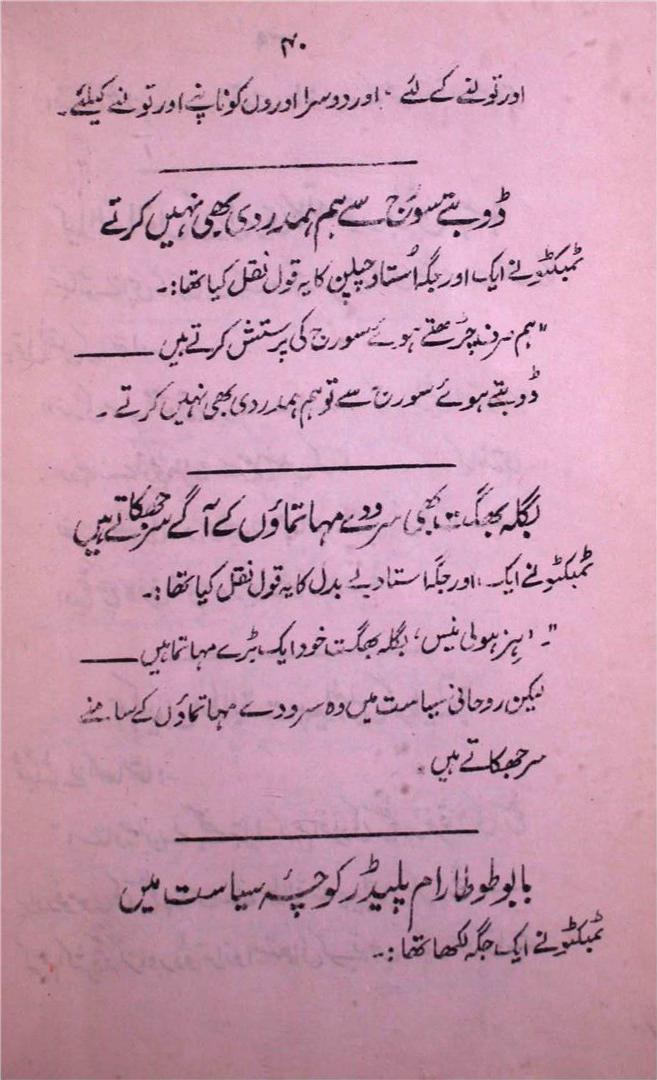 ۴۰
اور تولنے کے لئے ، اور دوسرا اوروں کو ناپنے اور تولنے کیلئے۔
ڈوبتے سورج سے ہم ہمدردی بھی نہیں کرتے
ٹمبکٹو نے ایک اور جگہ اُستاد چپلن کا یہ قول نقل کیا تھا:۔
"ہم صرف چڑھتے ہوئے سورج کی پرستش کرتے ہیں ———
ڈوبتے ہوئے سورج سے تو ہم ہمدردی بھی نہیں کرتے ۔
بگلہ بھگت بھی سرودے مہاتماؤں کے آگے سر جھکاتے ہیں
ٹمبکٹو نے ایک اور جگہ استاد بے بدل کا یہ قول نقل کیا تھا:۔
"۔ 'ہز ہولی نیس' بگلہ بھگت خود ایک بڑے مہاتما ہیں ———
لیکن روحانی سیاست میں وہ سرودے مہاتماؤں کے سامنے
سر جھکاتے ہیں۔
بابو طوطا رام پلیڈر کوچۂ سیاست میں
ٹمبکٹو نے ایک جگہ لکھا تھا:۔